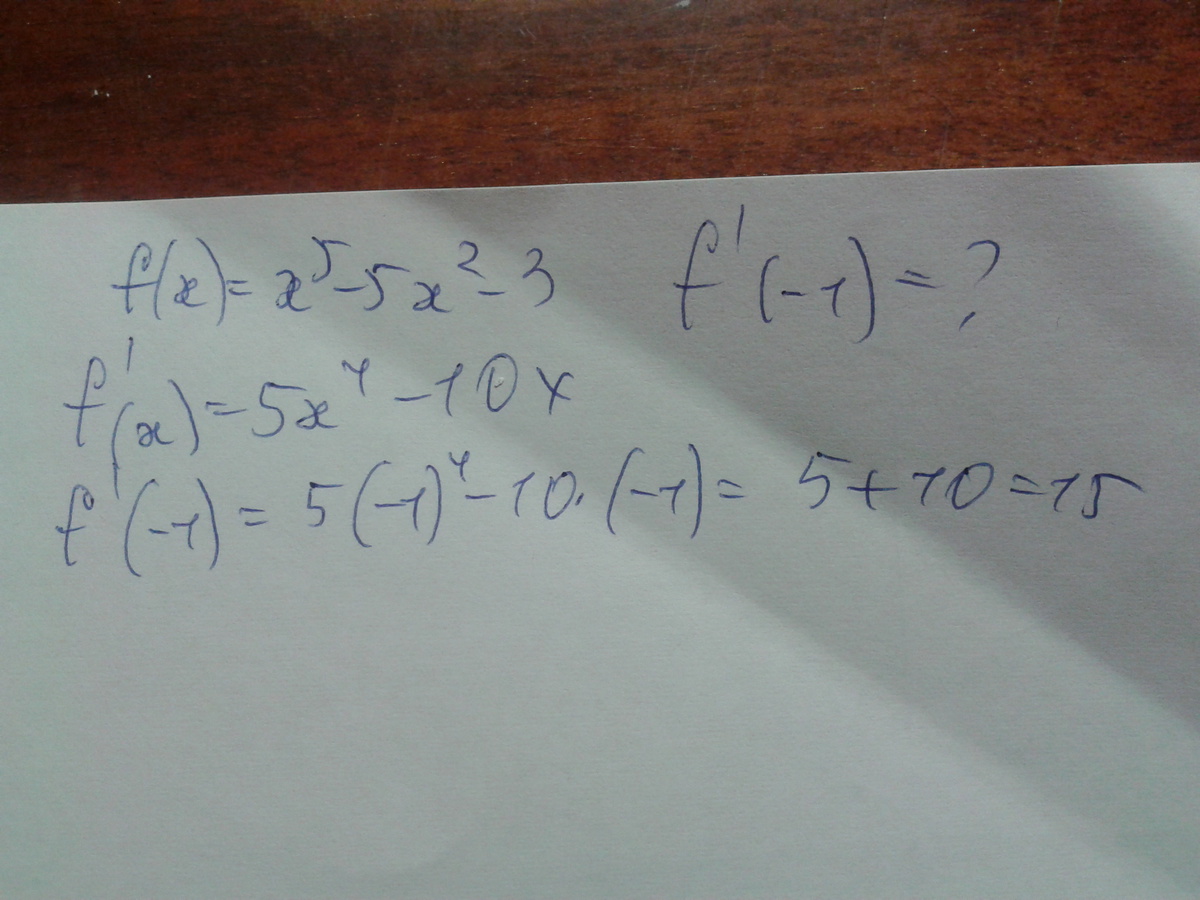 f(x)=x⁵-5x²-3 f'(-1)=?
f'(x)=5x⁴-10x
f'(-1)=5(-1)⁴-10·(-1)=5+10=15